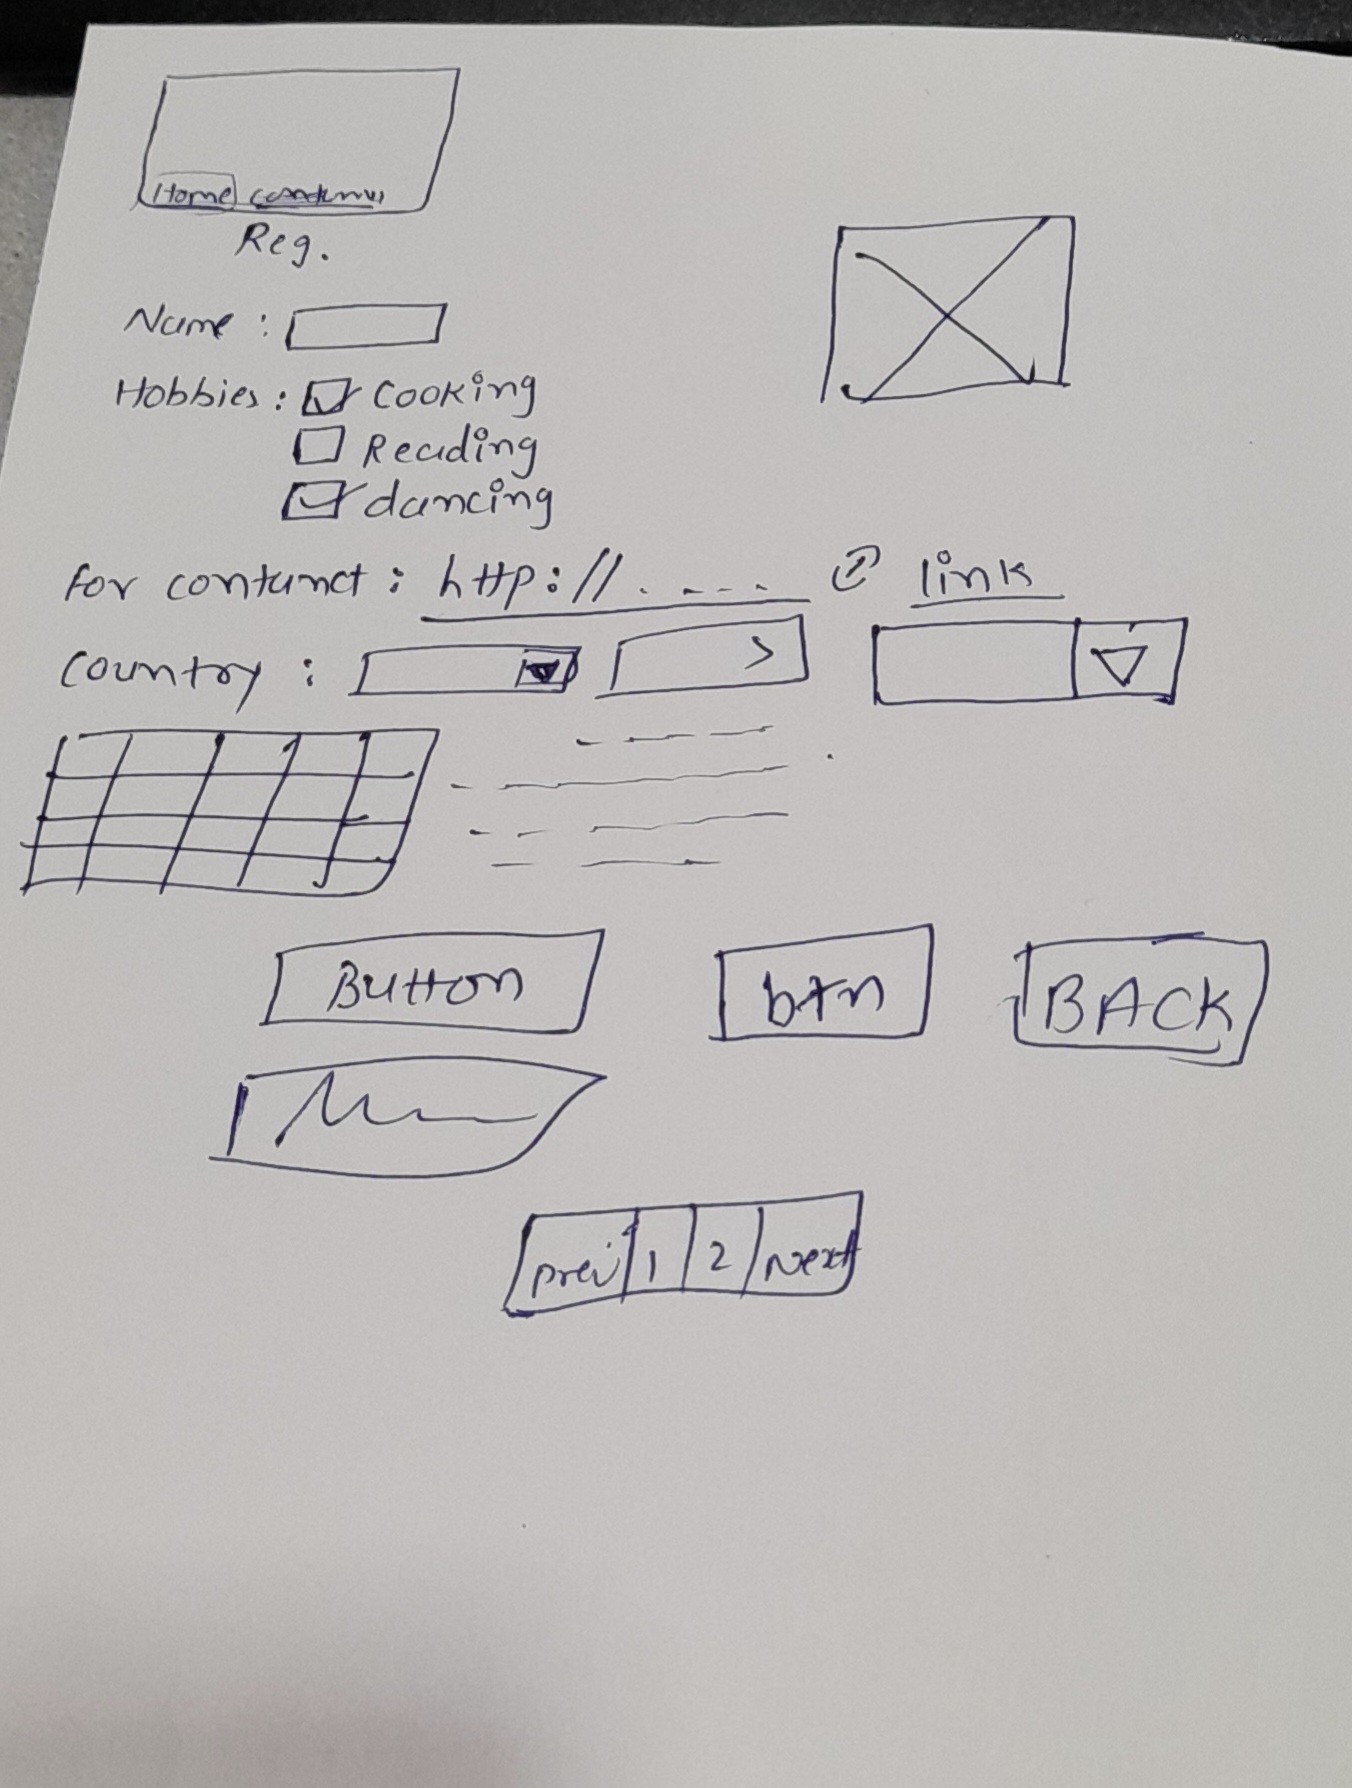 Home
Reg.
Name :
Hobbies : Cooking
Reading
dancing
For contanct : http://. ---- link
Country : >
Button btn BACK
prev 1 2 Next